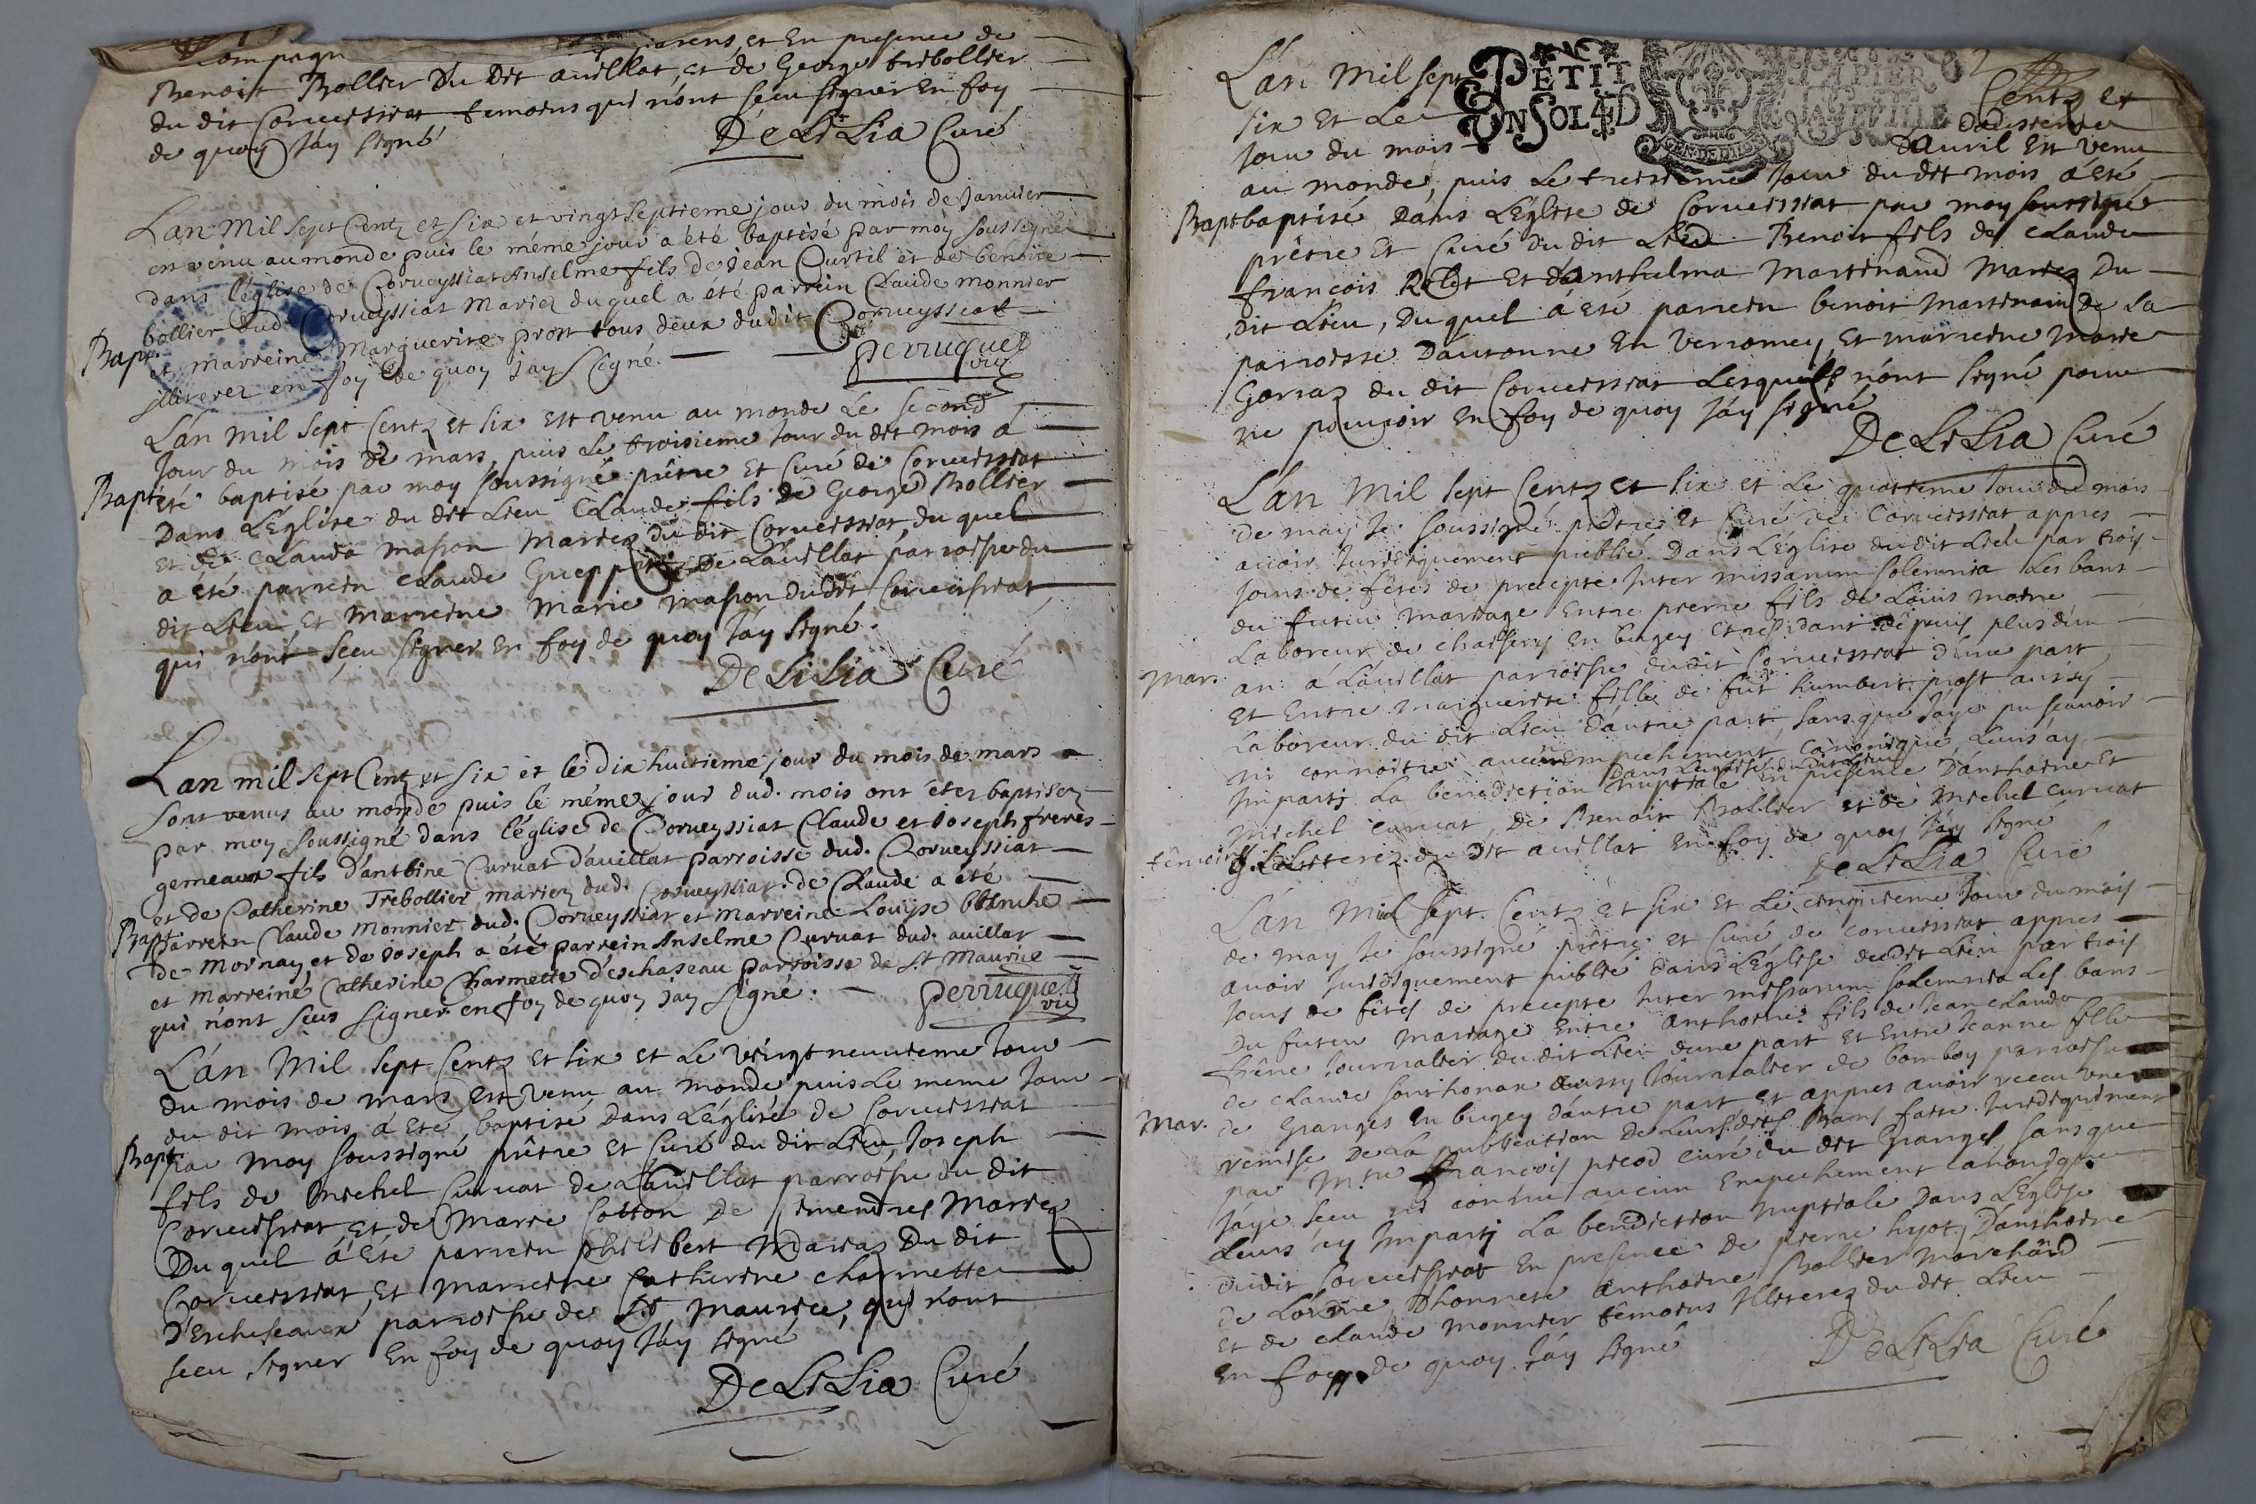 compagn parens, et En presence de
Benoist Bollier Du Dit auillat, et de George trebollier
du dit Corueissiat temoins qui n'ont sceu signer En foy
de quoy J'ay signé
De LiLia Curé
Lan Mil sept Centz et six et vingt septieme jour du mois de Januier
est venu au monde puis le méme jour a été baptisé par moy soussigné
dans l'église de Corueyssiat Anselme fils de Jean Curtil et de benoite
bollier dud. Corueyssiat Mariez duquel a été parrein Claude monnier
Bapt.
et marreine Marguerite prost tous deux dudit Corueyssiat
illiterez en foy de quoy j'ay signé.
perruquet
vic
L'an Mil sept Centz et six est venu au monde Le second
Jour du mois de mars, puis Le troisieme Jour du dit mois a
Bapt. eté baptisé par moy soussigné prêtre et Curé de Corueissiat
Dans L'Église du dit Lieu Claude fils de George Bollier
et de Clauda masson Mariez du dit Corueissiat, du quel
a été parrein Claude Guepp De Lauillat parroisse du
dit Lieu, et Marreine Marie masson dudit Corueissiat
qui n'ont sceu signer En foy de quoy J'ay signé.
De LiLia Curé
Lan mil sept Centz et six et le dix huitieme jour du mois de mars
sont venus au monde puis le méme jour dud. mois ont étez baptisez
par moy soussigné dans l'église de Corueyssiat Claude et Joseph fréres
gemeaux fils d'antoine Curuat d'auillat parroisse dud. Corueyssiat
et de Catherine Trebollier mariez dud. Corueyssiat. de Claude a été
Bapt. parrein Claude monnier dud. Corueyssiat et Marreine Louyse blanche
de Mornay et de Joseph a été parrein Anselme Curuat dud. auillat
et marreine Catherine Charmette d'eschaseau parroisse de St Maurice
qui n'ont sceu signer en foy de quoy j'ay signé.
perruquet
vic
L'an Mil sept Centz et six et Le vingt neuuieme Jour
du mois de mars est venu au monde puis Le meme Jour
du dit mois á Eté baptisé Dans L'église de Corueissiat
Bapt. par moy soussigné prêtre et Curé du dit Lieu, Joseph
fils de Michel Curuat de Lauillat parroisse du dit
Corueissiat et de Marie Cotton De simendres Mariez
Du quel á Eté parrein philibert Mariaz Du dit
Corueissiat, et Marreine Catherine Charmette
D'Escheseaux parroisse de St maurice, qui n'ont
sceu signer En foy de quoy J'ay signé
De LiLia Curé
PETIT PAPIER
UN SOL 4 D LA FEUILLE
GEN. DE DIJON
2
L'an Mil sept Centz et
six et Le dousieme
Jour du mois D'auril est venu
au monde, puis Le treisieme Jour du dit mois á eté
Bapt. baptisé Dans L'église de Corueissiat par moy soussigné
prêtre et Curé du dit Lieu Benoit fils de Claude
françois Rolet et d'anthelma Martinand Mariez Du
dit Lieu, Du quel á été parrein benoit Martinand De La
parroisse D'autonne En Verromey, et marreine Marie
Gorraz du dit Corueissiat Lesquels n'ont signé pour
ne pouuoir En foy de quoy J'ay signé
De LiLia Curé
L'an Mil sept Centz et six et Le quatrieme Jour du mois
de may Je soussigné prêtre et Curé de Corueissiat appres
auoir Juridiquement publié Dans L'église du dit Lieu par trois
Jours de fêtes de precepte Inter missarum solemnia Les bans
du futur Mariage Entre pierre fils de Loüis moine
Laboreur de chaisery En bugey et residant depuis plus d'un
Mar. an a Lauillat parroisse dudit Corueissiat d'une part
et Entre marguerite fille de fut humbert prost aussy
Laboreur du dit Lieu D'autre part, sans que J'aye pu sçauoir
ni connoitre aucun Empechement Canonique, Leurs ay
Dans L'église du dit Lieu
Imparti La benediction Nuptiale En presence D'anthoine et
Michel Curuat, de Benoit Bollier et de Michel Curuat
témoins illiterez du dit auillat En foy de quoy J'ay signé
De LiLia Curé
L'an Mil sept Centz et six et Le cinquieme Jour du mois
de may Je soussigné prêtre et Curé de Corueissiat appres
auoir Juridiquement publié Dans L'église dudit Lieu par trois
Jours de fêtes de precepte Inter missarum solemnia Les bans
Du futur Mariage Entre anthoine fils de Jean Claude
frêne Journalier du dit Lieu d'une part et Entre Jeanne fille
de Claude Sonthonax aussy Journalier de bomboy parroisse
Mar. de Granges En bugey D'autre part et appres auoir receu une
remise De La publication De Leursdits Bans faite Juridiquement
par Mre françois picod Curé du dit Granges, sans que
J'aye sceu ni connu aucun Empechement Canonique
Leurs ay Imparti La benediction Nuptiale Dans L'Église
dudit Corueissiat En presence de pierre hyot, D'anthoine
de Lorme, D'honnete Anthoine Bollier Marchand
et de Claude Monnier temoins Illiterez du dit Lieu
En foy de quoy J'ay signé
De LiLia Curé